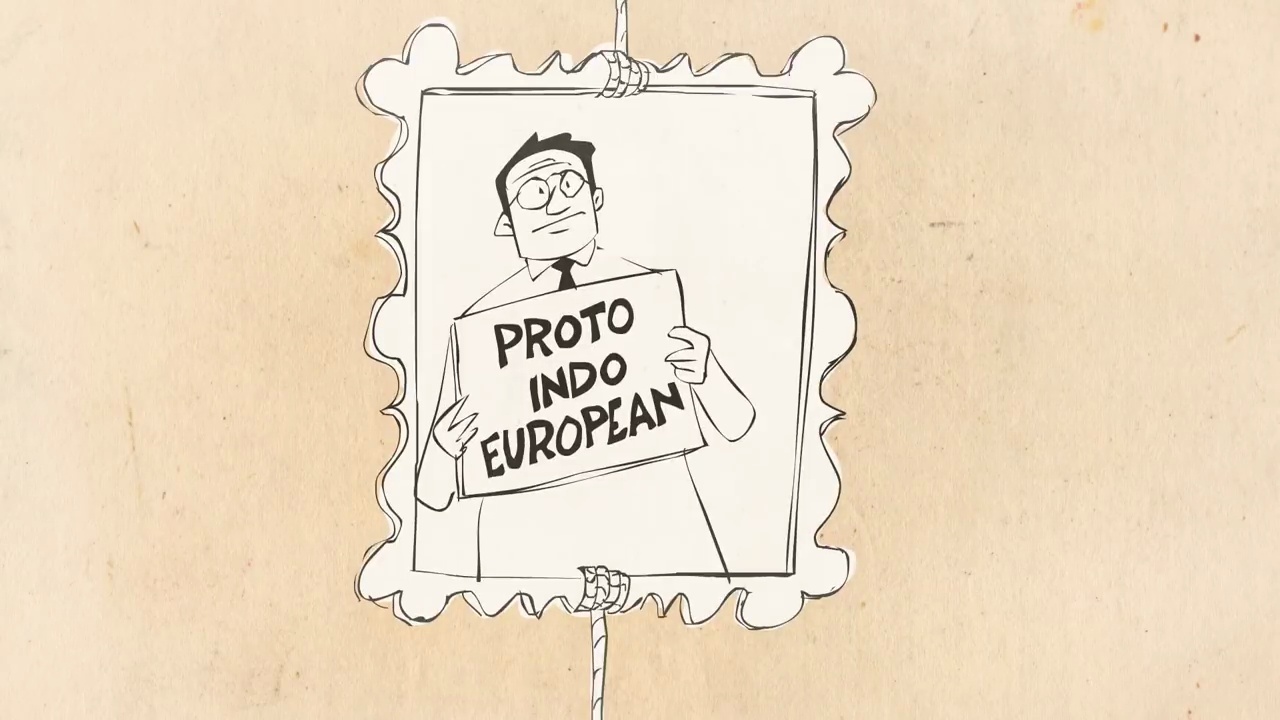 PROTO
INDO
EUROPEAN